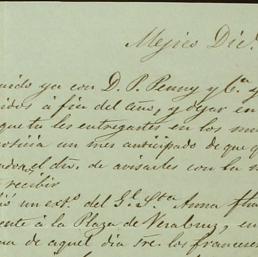 Mejico Dic.
uido ya con D. P. Penny y C.ª y
idos á fin del año, y dejar en
que tu les entregantes en los mis
noticia un mes anticipado de que q
el dro. de avisarles con la m
recibir
is un ext.º del G.l S.ta Anna fha
ente á la Plaza de Veracruz, en
na de aquel dia sre. los franceses